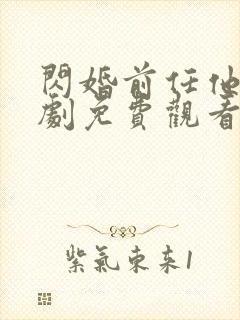 閃婚前任他
劇免費觀看
紫氣東來1